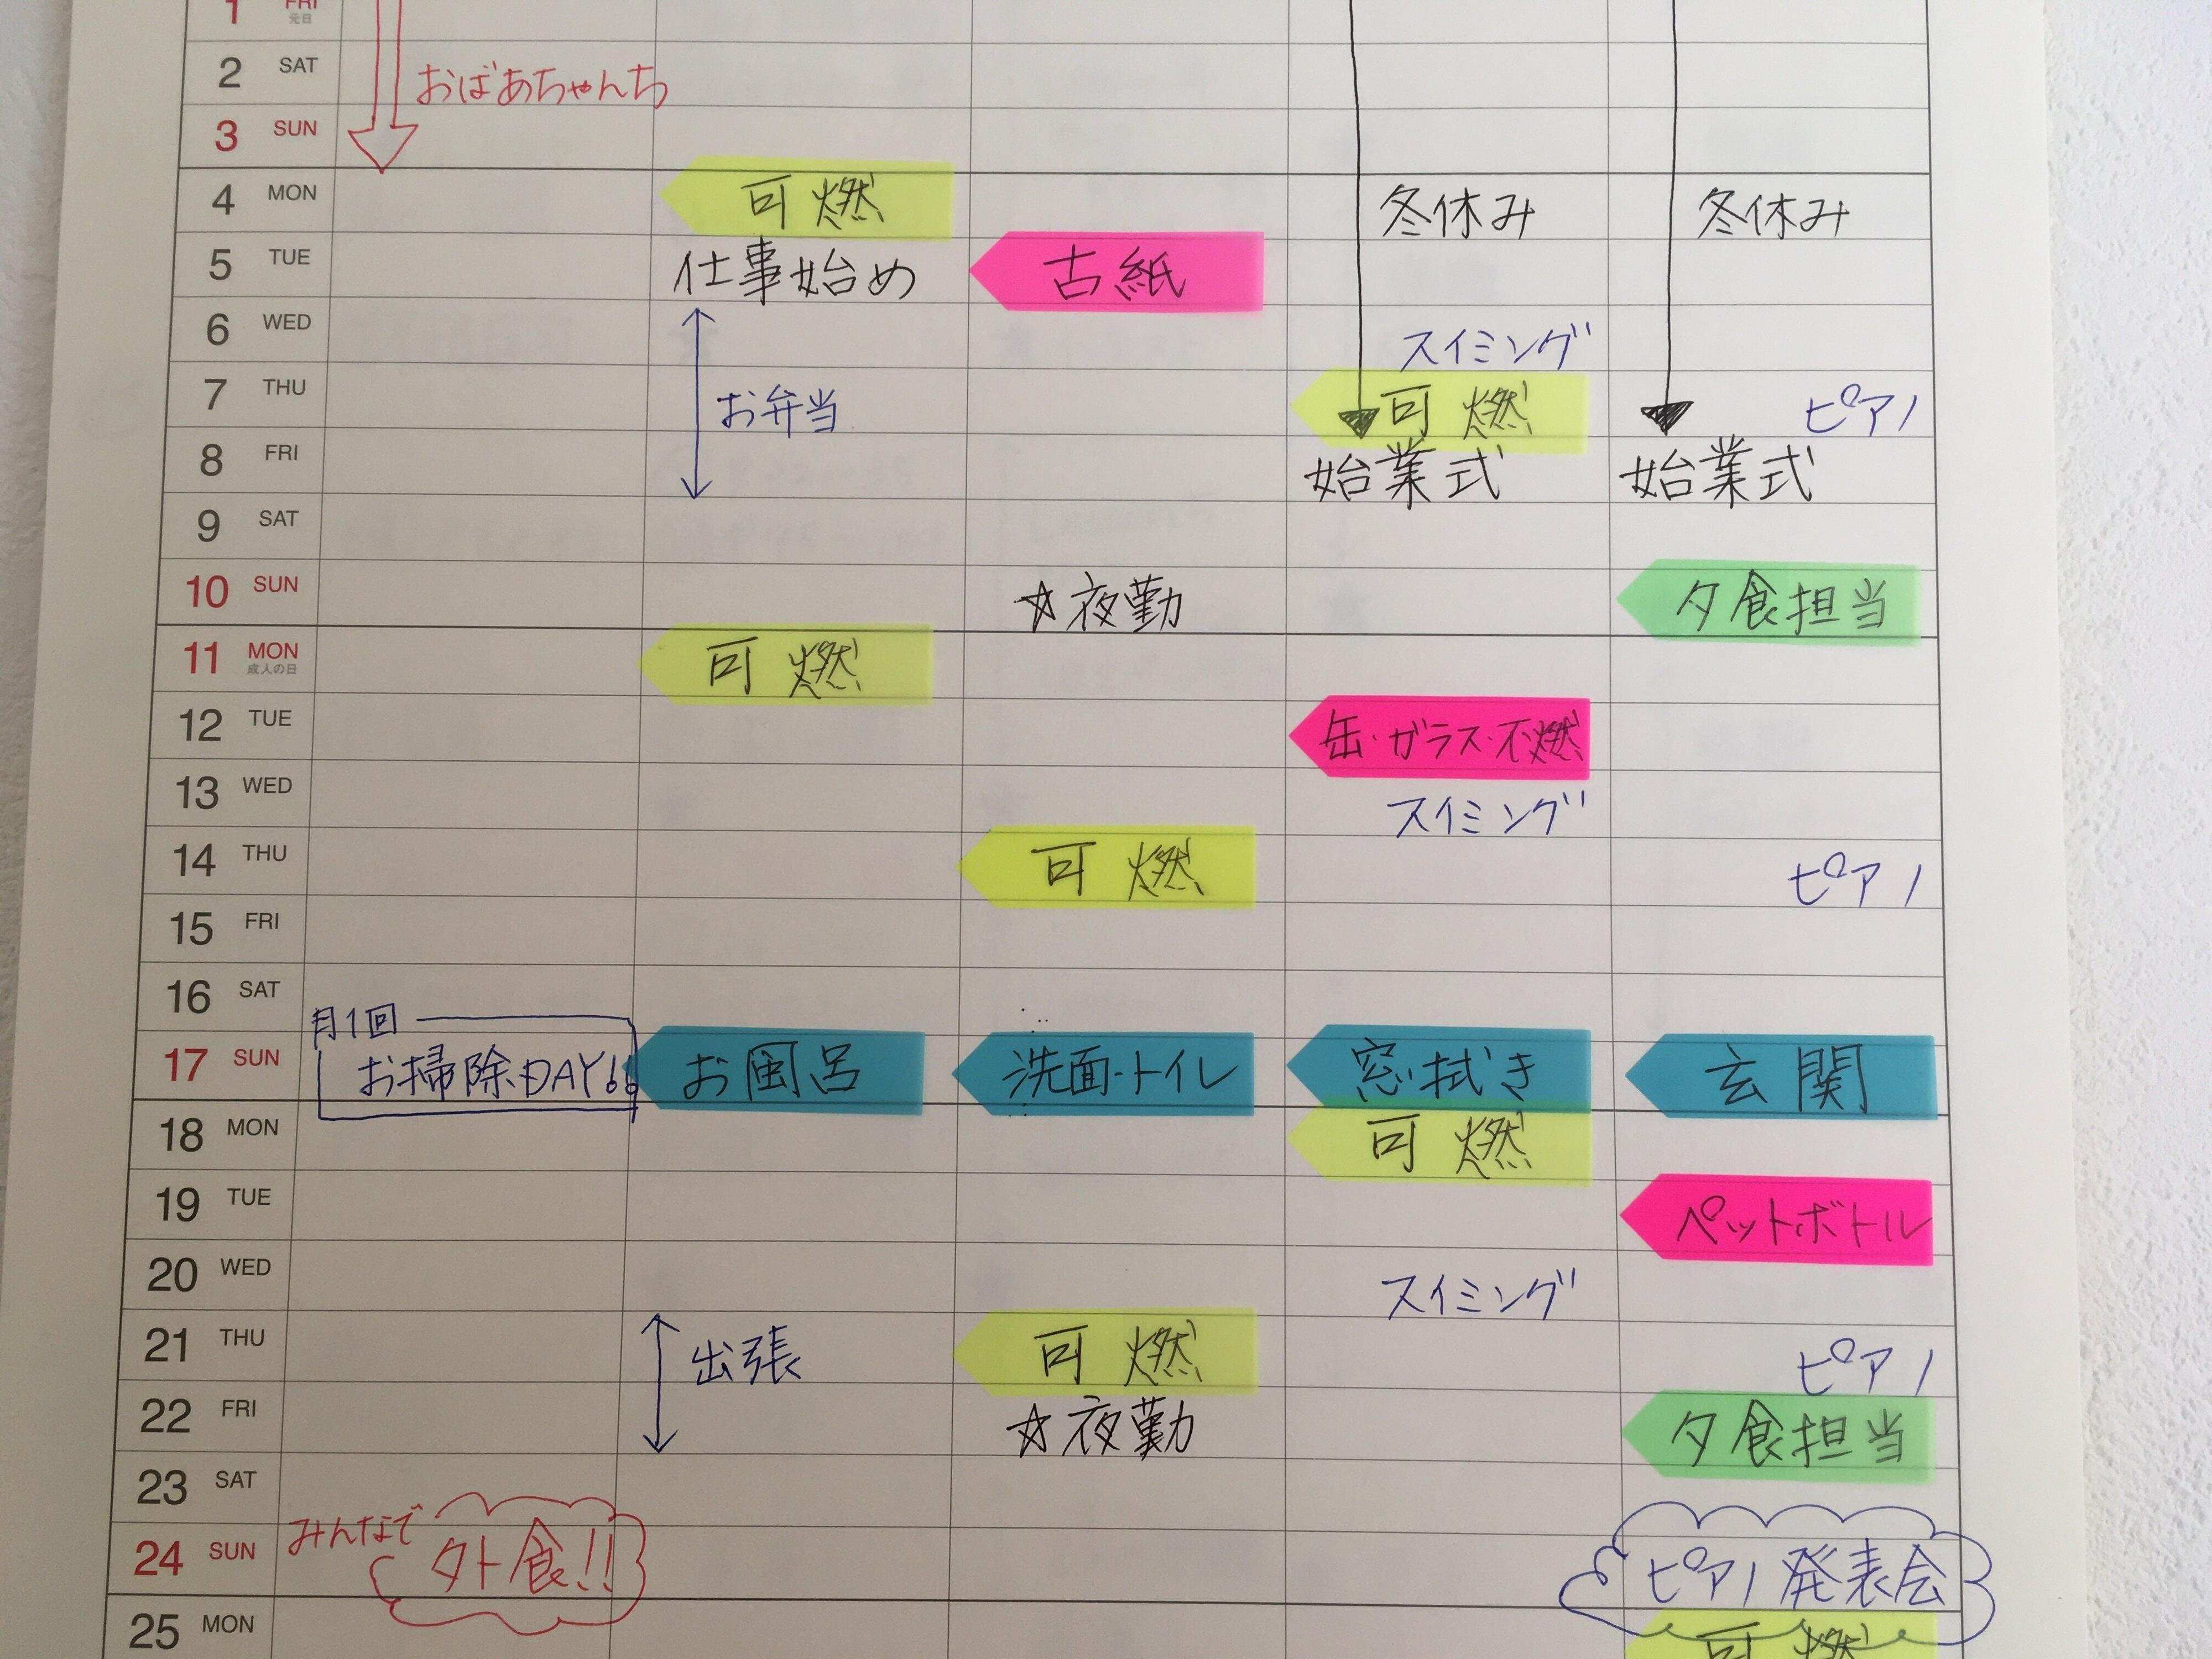 1 FRI
元日
2 SAT おばあちゃんち
3 SUN
4 MON 可燃 冬休み 冬休み
5 TUE 仕事始め 古紙
6 WED スイミング
7 THU お弁当 可燃 ピアノ
8 FRI 始業式 始業式
9 SAT
10 SUN ☆夜勤 夕食担当
11 MON 可燃
成人の日
12 TUE 缶・ガラス・不燃
13 WED スイミング
14 THU 可燃 ピアノ
15 FRI
16 SAT
月1回
17 SUN お掃除DAY!! お風呂 洗面・トイレ 窓拭き 玄関
18 MON 可燃
19 TUE ペットボトル
20 WED スイミング
21 THU 出張 可燃 ピアノ
22 FRI ☆夜勤 夕食担当
23 SAT
みんなで
24 SUN 外食!! ピアノ発表会
25 MON 可燃